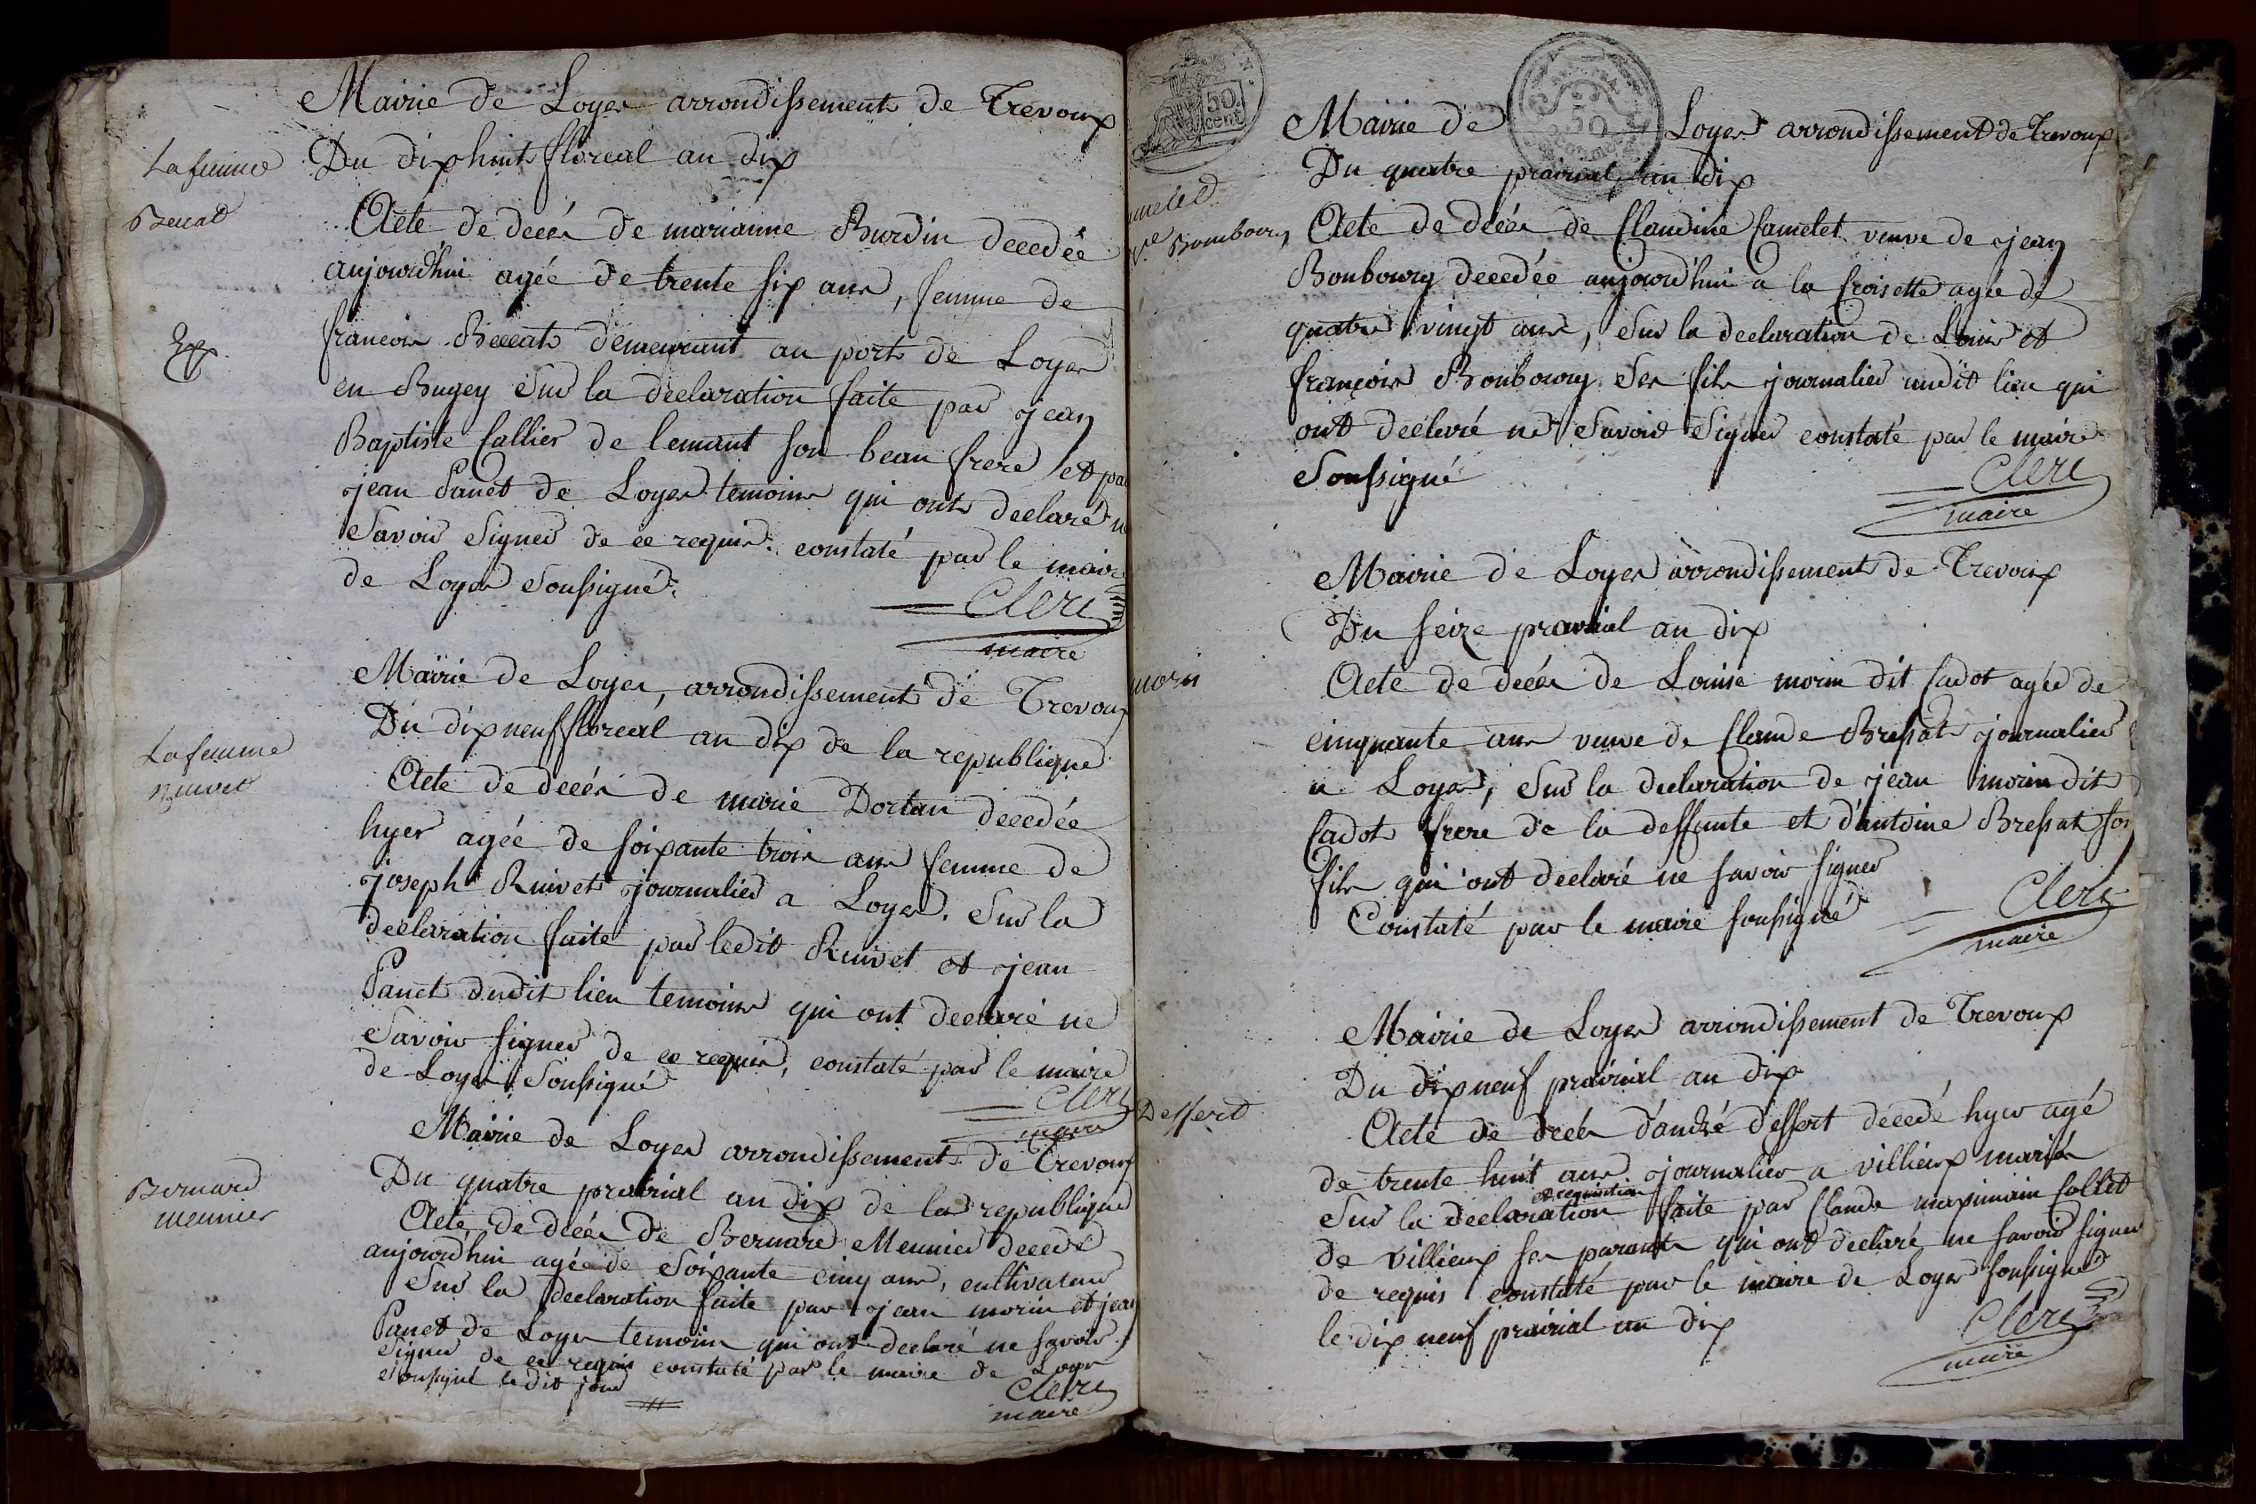 Mairie de Loyes arrondissement de Trevoux
Du dix huit floreal an dix
La femme
Beccat
Acte de décès de marianne Burdin decedée
aujourd'hui agée de trente six ans, femme de
francois Beccat demeurant au port de Loyes
en Bugey Sur la declaration faite par jean
Baptiste Collier de lemant son beau frere et pa
jean Panet de Loyes temoins qui ont declaré n
Savoir Signer de ce requis. constaté par le mair
de Loyes Soussigné.
Clerc
maire
Mairie de Loyes, arrondissement de Trevoux
Du dix neuf floreal an dix de la republique
La femme
Ruivet
Acte de décès de marie Dortan decedée
hyer agée de soixante trois ans femme de
joseph Ruivet journalier a Loyes. Sur la
declaration faite par ledit Ruivet et jean
Panet dudit lieu temoins qui ont declaré ne
Savoir signer de ce requis, constaté par le maire
de Loyes Soussigné
Clerc
maire
Mairie de Loyes arrondissement de Trevoux
Du quatre prairial an dix de la republique
Bernard
meunier
Acte de décès de Bernard Meunier decedé
aujourd'hui agée de Soixante cinq ans, cultivateur
Sur la declaration faite par jean morin et jean
Panet de Loyes temoins qui ont declaré ne savoir
signer de ce requis constaté par le maire de Loyes
Soussigné ledit jour
Clerc
maire
50
cent
50
Mairie de Loyes arrondissement de Trevoux
Du quatre prairial an dix
amelet
Ve Bombourg
Acte de décès de Claudine Camelet veuve de jean
Bonbourg decedée aujourd'hui a la Croisette agée de
quatre vingt ans, Sur la declaration de Louis et
françois Bonbourg Ses fils journalier audit lieu qui
ont declaré ne Savoir Signer constaté par le maire
Soussigné
Clerc
maire
Mairie de Loyes arrondissement de Trevoux
Du seize prairial an dix
morin
Acte de décès de Louise morin dit Cadot agée de
cinquante ans veuve de Claude Bressat journalier
a Loyes, Sur la declaration de jean morin dit
Cadot frere de la deffunte et d'antoine Bressat son
fils qui ont declaré ne savoir signer
Constaté par le maire soussigné
Clerc
maire
Mairie de Loyes arrondissement de Trevoux
Du dix neuf prairial an dix
Dessert
Acte de décès d'andré dessert decedé hyer agé
de trente huit ans journalier a villieux marié
et requisition
Sur la declaration faite par Claude maximain Collet
de villieux ses parants qui ont declaré ne savoir signer
de requis constaté par le maire de Loyes soussigné
le dix neuf prairial an dix
Clerc
maire